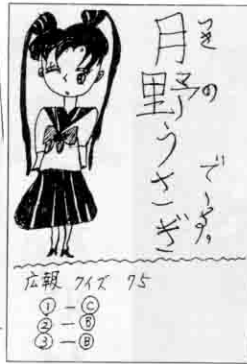 月野うさぎ
つきの
で〜す。
広報 クイズ 75
①-Ⓒ
②-Ⓑ
③-Ⓑ